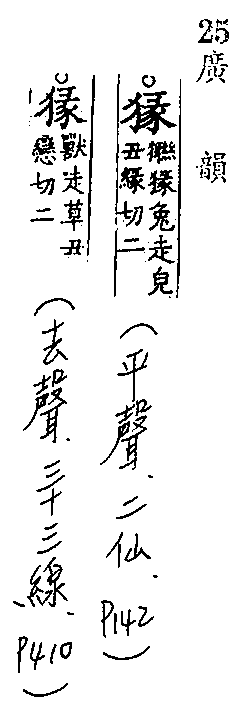 25
廣韻
○猭
猭兔走皃
丑緣切二
(平聲、二仙、P142)
○猭
獸走草丑
戀切二
(去聲、三十三線、P410)